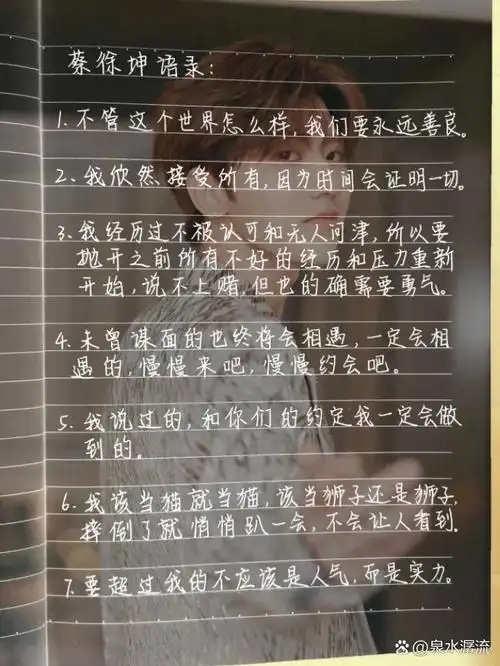 蔡徐坤语录:
1.不管这个世界怎么样,我们要永远善良。
2.我欣然接受所有,因为时间会证明一切.
3.我经历过不被认可和无人问津,所以要
抛开之前所有不好的经历和压力重新
开始,说不上赌,但也的确需要勇气。
4.未曾谋面的也终将会相遇,一定会相
遇的,慢慢来吧,慢慢约会吧。
5.我说过的,和你们的约定我一定会做
到的。
6.我该当猫就当猫,该当狮子还是狮子,
摔倒了就悄悄趴一会,不会让人看到.
7.要超过我的不应该是人气,而是实力。
泉水潺流